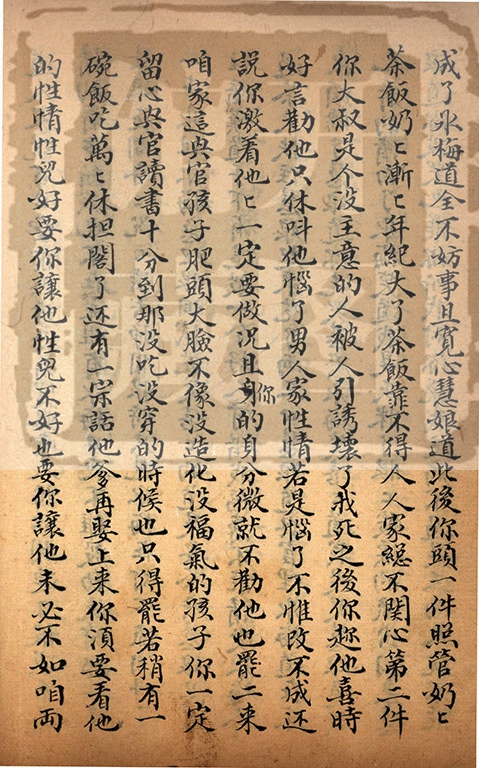 成了氷梅道全不妨事且寛心慧娘道此後你頭一件照管奶〻
茶飯奶〻漸〻年紀大了茶飯靠不得人人家緫不関心第二件
你大叔是个没主意的人被人引誘壊了我死之後你趂他喜時
好言勸他只休呌他惱了男人家性情若是惱了不惟改不成还
說你激着他〻一定要做况且你的身分微就不勸他也罷二来
咱家這興官孩子肥頭大臉不像没造化没福氣的孩子你一定
留心與官讀書十分到那没吃没穿的時候也只得罷若稍有一
碗飯吃萬〻休担閣了还有一宗話他爹再娶上来你湏要看他
的性情性兒好要你讓他性兒不好也要你讓他未必不如咱両